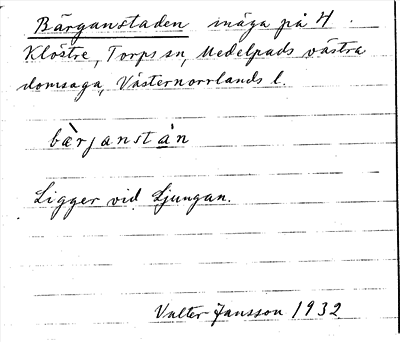 Bärganstaden inäga på 4
Klöstre, Torps sn, Medelpads västra
domsaga, Västernorrlands l.
bärjanstån
Ligger vid Ljungan.
Valter Jansson 1932